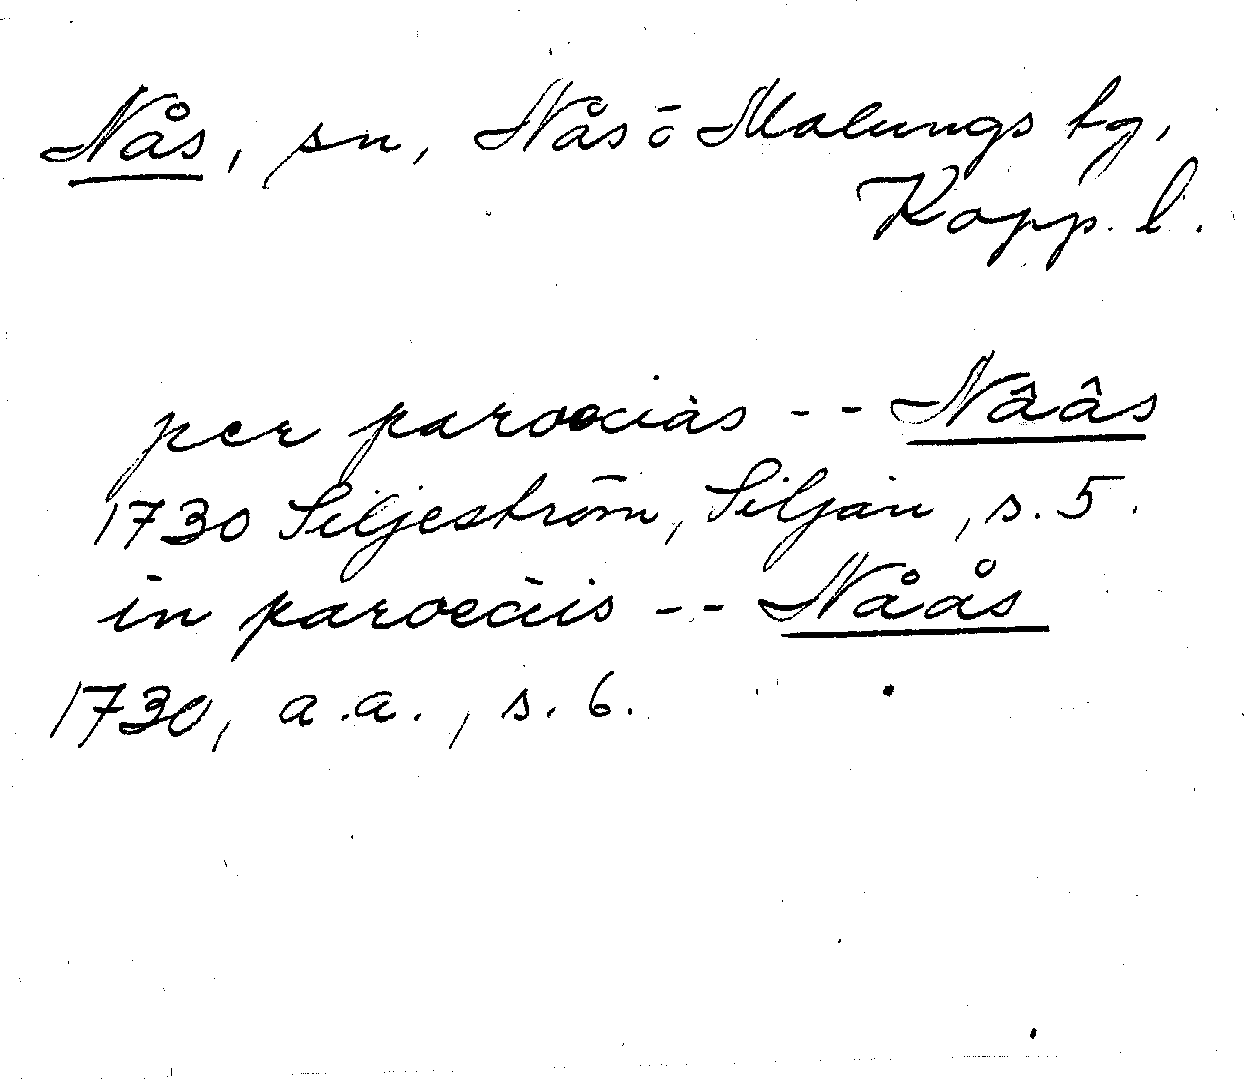 Nås, sn, Nås o Malungs tg,
Kopp. l.
per paroecias -- Nââs
1730 Siljeström, Siljan, s. 5.
in paroeciis -- Nåås
1730, a.a., s. 6.